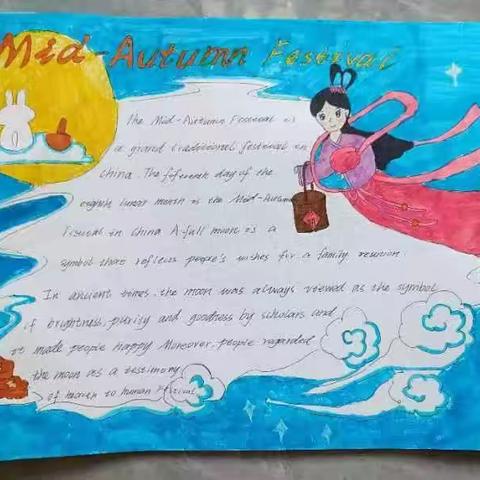 Mid-Autumn Festival
The Mid-Autumn Festival is
a grand traditional festival in
China. The fifteenth day of the
eighth lunar month is the Mid-Autumn
Fistival in China A full moon is a
symbol that reflects people's wishes for a family reunion.
In ancient times, the moon was always viewed as the symbol
of brightness, purity and goodness by scholars and
it made people happy Moreover, people regarded
the moon as a testimony
of heaven to human